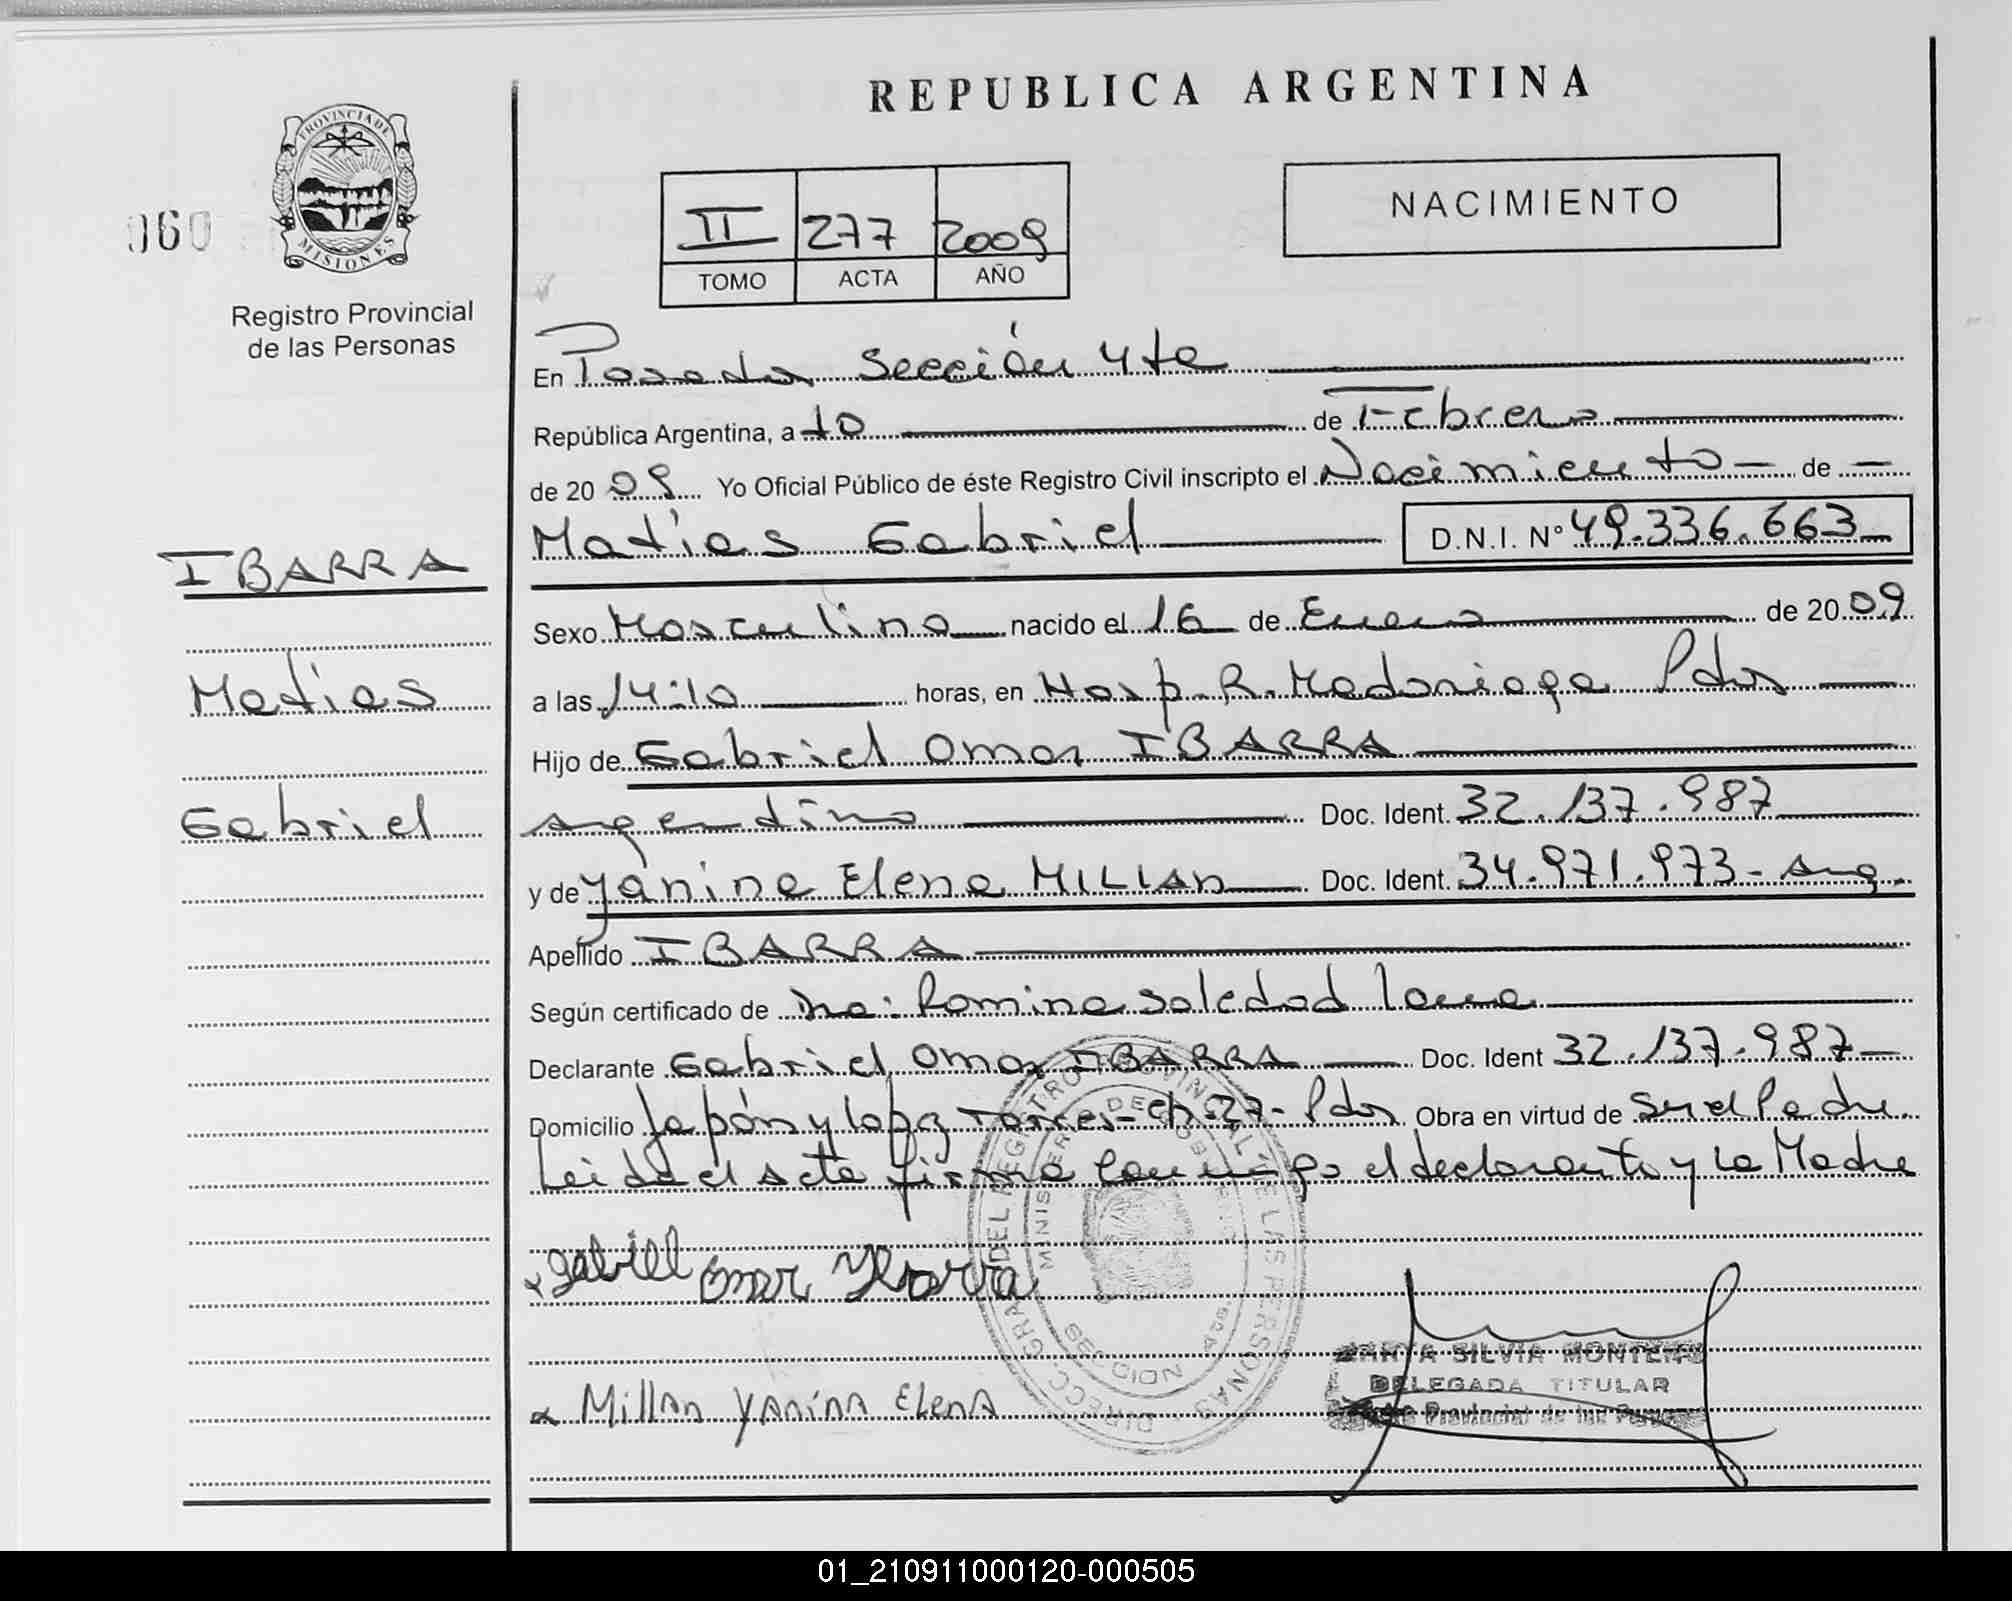 REPUBLICA ARGENTINA
PROVINCIA DE MISIONES
060
Registro Provincial
de las Personas
II 277 2009
TOMO ACTA AÑO
NACIMIENTO
En Posadas Sección 4ta
República Argentina, a 10 de Febrero
de 2009 Yo Oficial Público de éste Registro Civil inscripto el Nacimiento - de -
Matías Gabriel D.N.I. N° 49.336.663
IBARRA
Matías
Gabriel
Sexo Masculino nacido el 16 de Enero de 2009
a las 14:10 horas, en Hosp. R. Madariaga Pdas
Hijo de Gabriel Omar IBARRA
Argentino Doc. Ident. 32.137.987
y de Yanina Elena MILLAN Doc. Ident. 34.971.973 - Arg.
Apellido IBARRA
Según certificado de Romina Soledad
Declarante Gabriel Omar IBARRA Doc. Ident 32.137.987
Domicilio Japón y Lopez Torres - Ch 27 - Pdas Obra en virtud de ser el Padre
Leida el acta firma conmigo el declarante y la Madre
Gabriel Omar Ybarra
Millan Yanina Elena
DIRECC. GRAL DEL REGISTRO PROVINCIAL DE LAS PERSONAS
SECCION
SILVIA
DELEGADA TITULAR
Provincial de las
01_210911000120-000505